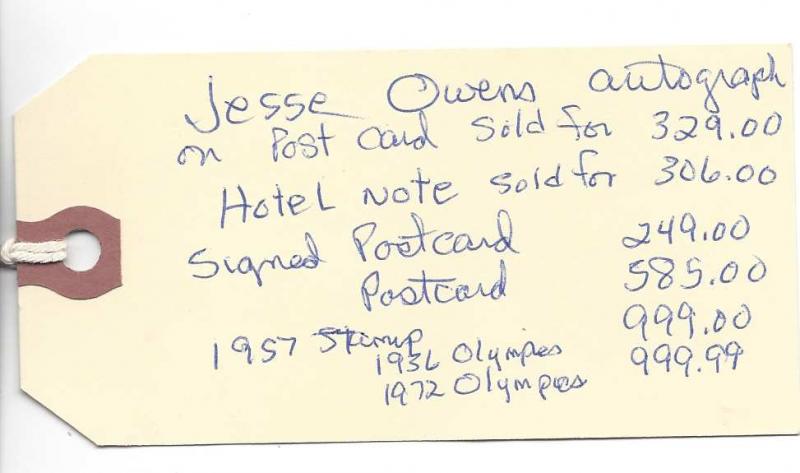 Jesse Owens autograph
on Post Card Sold for 329.00
Hotel Note sold for 306.00
Signed Postcard 249.00
Postcard 585.00
1957 Stamp 999.00
1936 Olympics 999.99
1972 Olympics